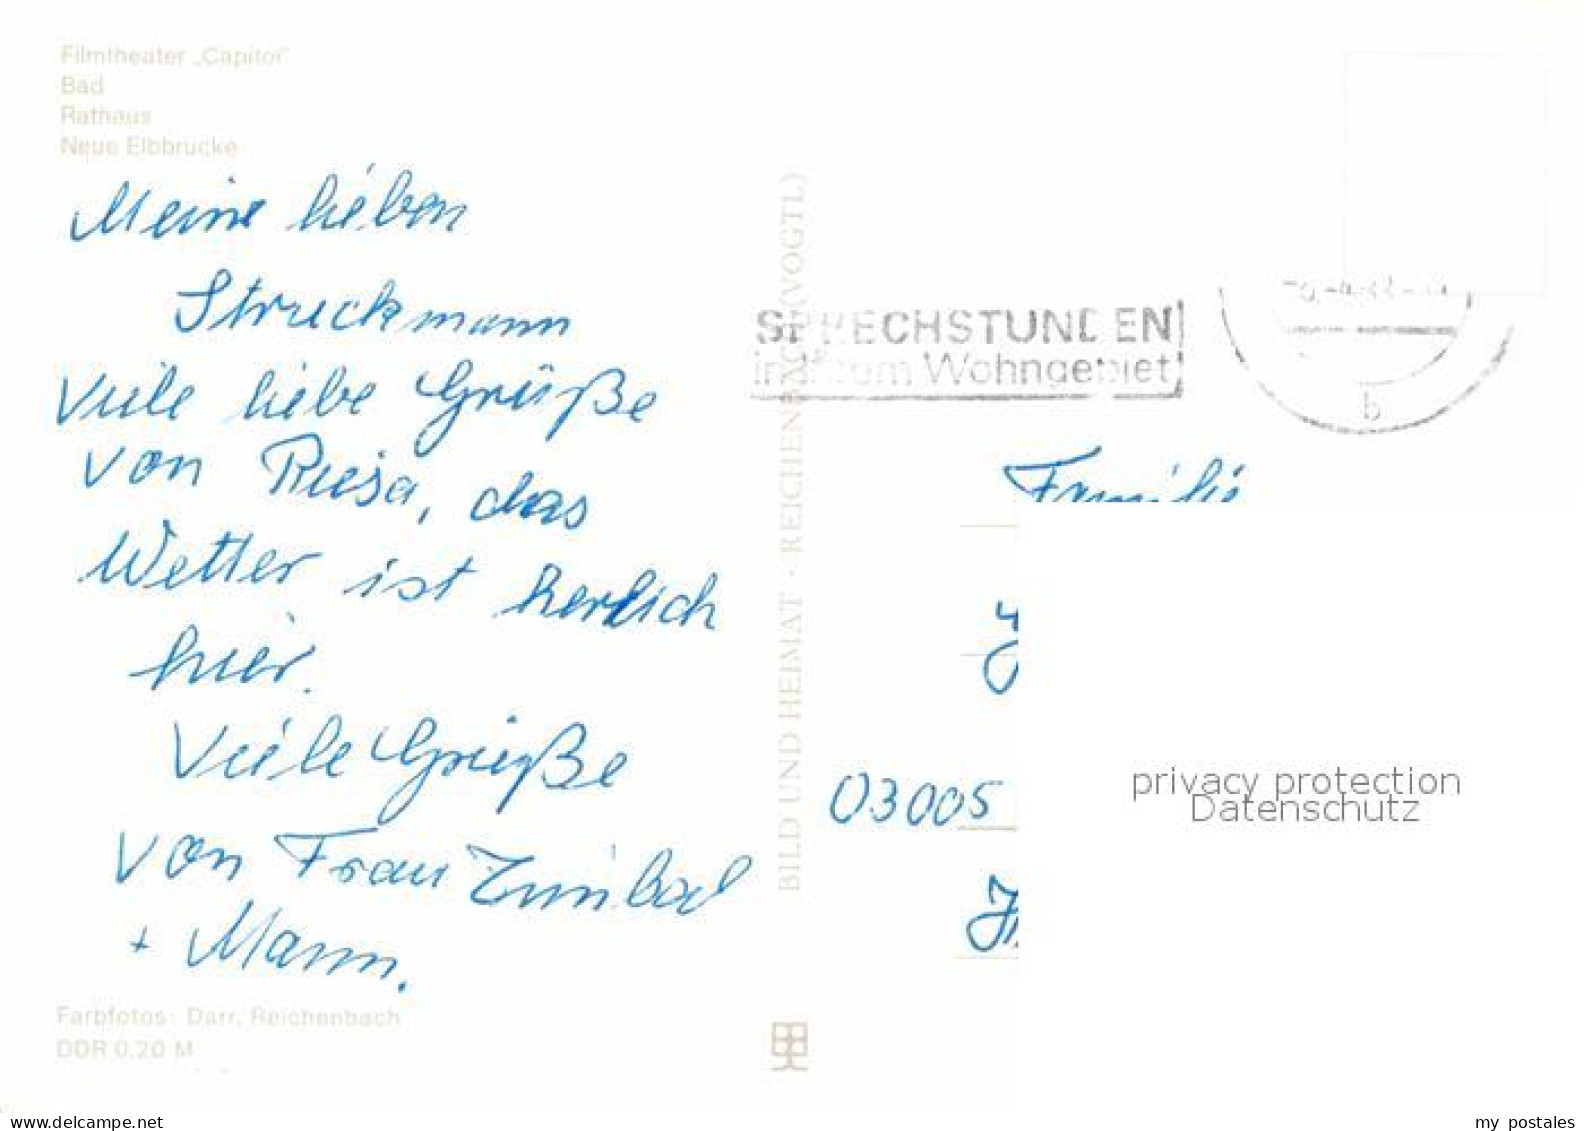 Filmtheater „Capitol"
Bad
Rathaus
Neue Elbbrücke
Meine lieben
Struckmann
Viele liebe Grüße
von Riesa, das
Wetter ist herlich
hier.
Viele Grüße
von Frau
+ Mann.
Farbfotos: Darr, Reichenbach
DDR 0,20 M
BILD UND HEIMAT · REICHENBACH (VOGTL)
SPRECHSTUNDEN
Wohngebiet
b
Familie
03005
privacy protection
Datenschutz
www.delcampe.net
my_postales